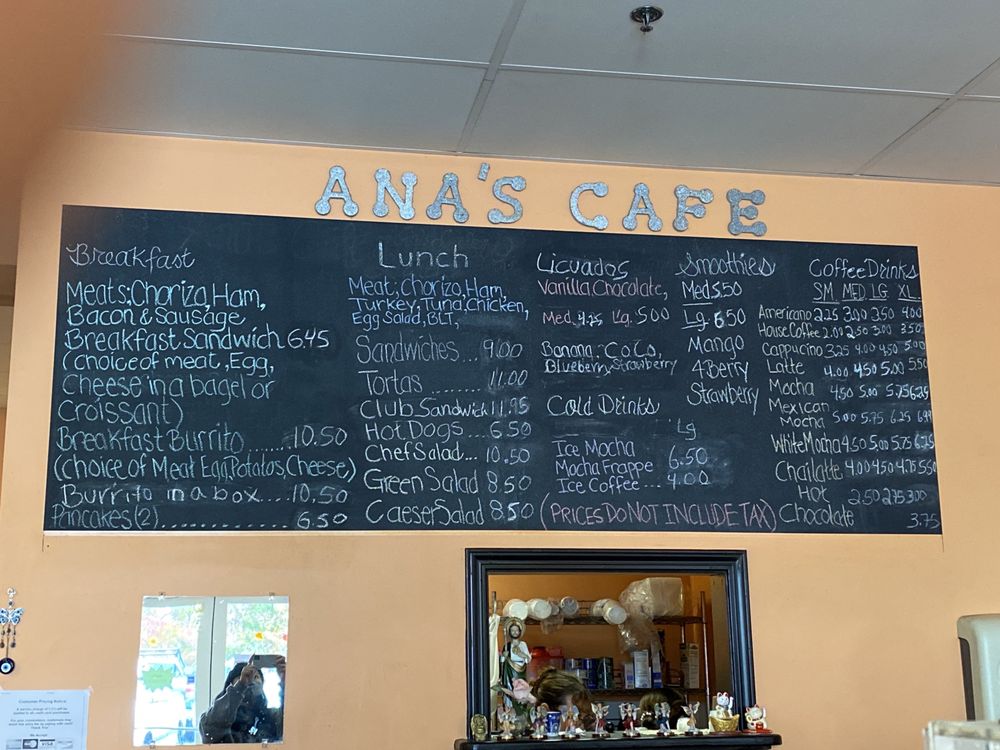 ANA'S CAFE
Breakfast
Meats: Chorizo, Ham,
Bacon & Sausage
Breakfast Sandwich 6.45
(choice of meat, Egg,
Cheese in a bagel or
Croissant)
Breakfast Burrito ..... 10.50
(choice of Meat Egg, Potatos, Cheese)
Burrito in a box .... 10.50
Pancakes (2) ............ 6.50
Lunch
Meat: Chorizo, Ham,
Turkey, Tuna, Chicken,
Egg Salad, BLT,
Sandwiches... 9.00
Tortas ......... 11.00
Club Sandwich 11.95
Hot Dogs... 6.50
Chef Salad... 10.50
Green Salad 8.50
Caeser Salad 8.50
Licuados
Vanilla, Chocolate,
Med. 4.25 Lg. 5.00
Banana, CoCo,
Blueberry, Strawberry
Cold Drinks
Lg
Ice Mocha
Mocha Frappe 6.50
Ice Coffee... 4.00
(PRICES DO NOT INCLUDE TAX)
Smoothies
Med 5.50
Lg. 6.50
Mango
4 Berry
Strawberry
Coffee Drinks
SM MED LG XL
Americano 2.25 3.00 3.50 4.00
House Coffee 2.00 2.50 3.00 3.50
Cappucino 3.25 4.00 4.50 5.00
Latte 4.00 4.50 5.00 5.50
Mocha 4.50 5.00 5.75 6.25
Mexican
Mocha 5.00 5.75 6.25 6.99
White Mocha 4.50 5.00 5.75 6.25
Chai latte 4.00 4.50 4.75 5.50
Hot 2.50 2.75 3.00
Chocolate 3.75
Customer Pricing Notice
VISA